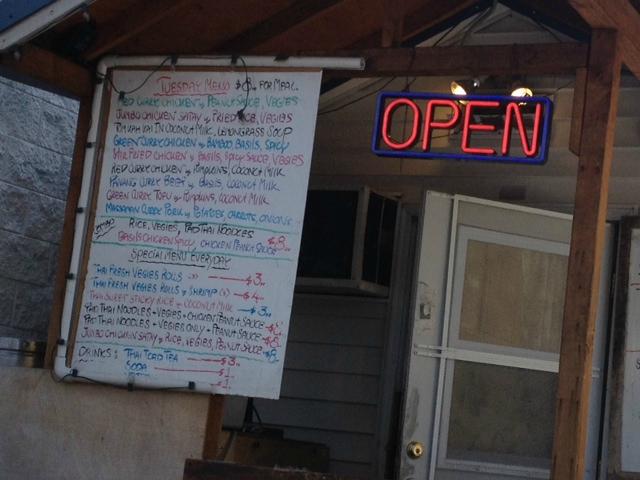 TUESDAY MENU $8.00 FOR MEAL.
RED CURRY CHICKEN w/ PEANUT SAUCE, VEGIES
JUMBO CHICKEN SATAY w/ FRIED RICE, VEGIES
TOM KAH KAI IN COCONUT MILK, LEMONGRASS SOUP
GREEN CURRY CHICKEN w/ BAMBOO, BASILS, SPICY
STIR FRIED CHICKEN w/ BASILS, SPICY SAUCE, VEGIES
RED CURRY CHICKEN w/ PUMPKINS, COCONUT MILK
PANANG CURRY BEEF w/ BASIL, COCONUT MILK
GREEN CURRY TOFU w/ PUMPKINS, COCONUT MILK
MASSAMAN CURRY PORK w/ POTATOES, CARROTS, ONIONS
COMBO RICE, VEGIES, PAD THAI NOODLES
BASILS CHICKEN SPICY, CHICKEN PEANUT SAUCE $8
SPECIAL MENU EVERYDAY
THAI FRESH VEGIES ROLLS $3
THAI FRESH VEGIES ROLLS w/ SHRIMP $4
THAI SWEET STICKY RICE w/ COCONUT MILK $3
PAD THAI NOODLES + VEGIES + CHICKEN, PEANUT SAUCE
PAD THAI NOODLES + VEGIES ONLY + PEANUT SAUCE
JUMBO CHICKEN SATAY w/ RICE, VEGIES, PEANUT SAUCE $8
DRINKS: THAI ICED TEA $3
SODA $1
$1
OPEN